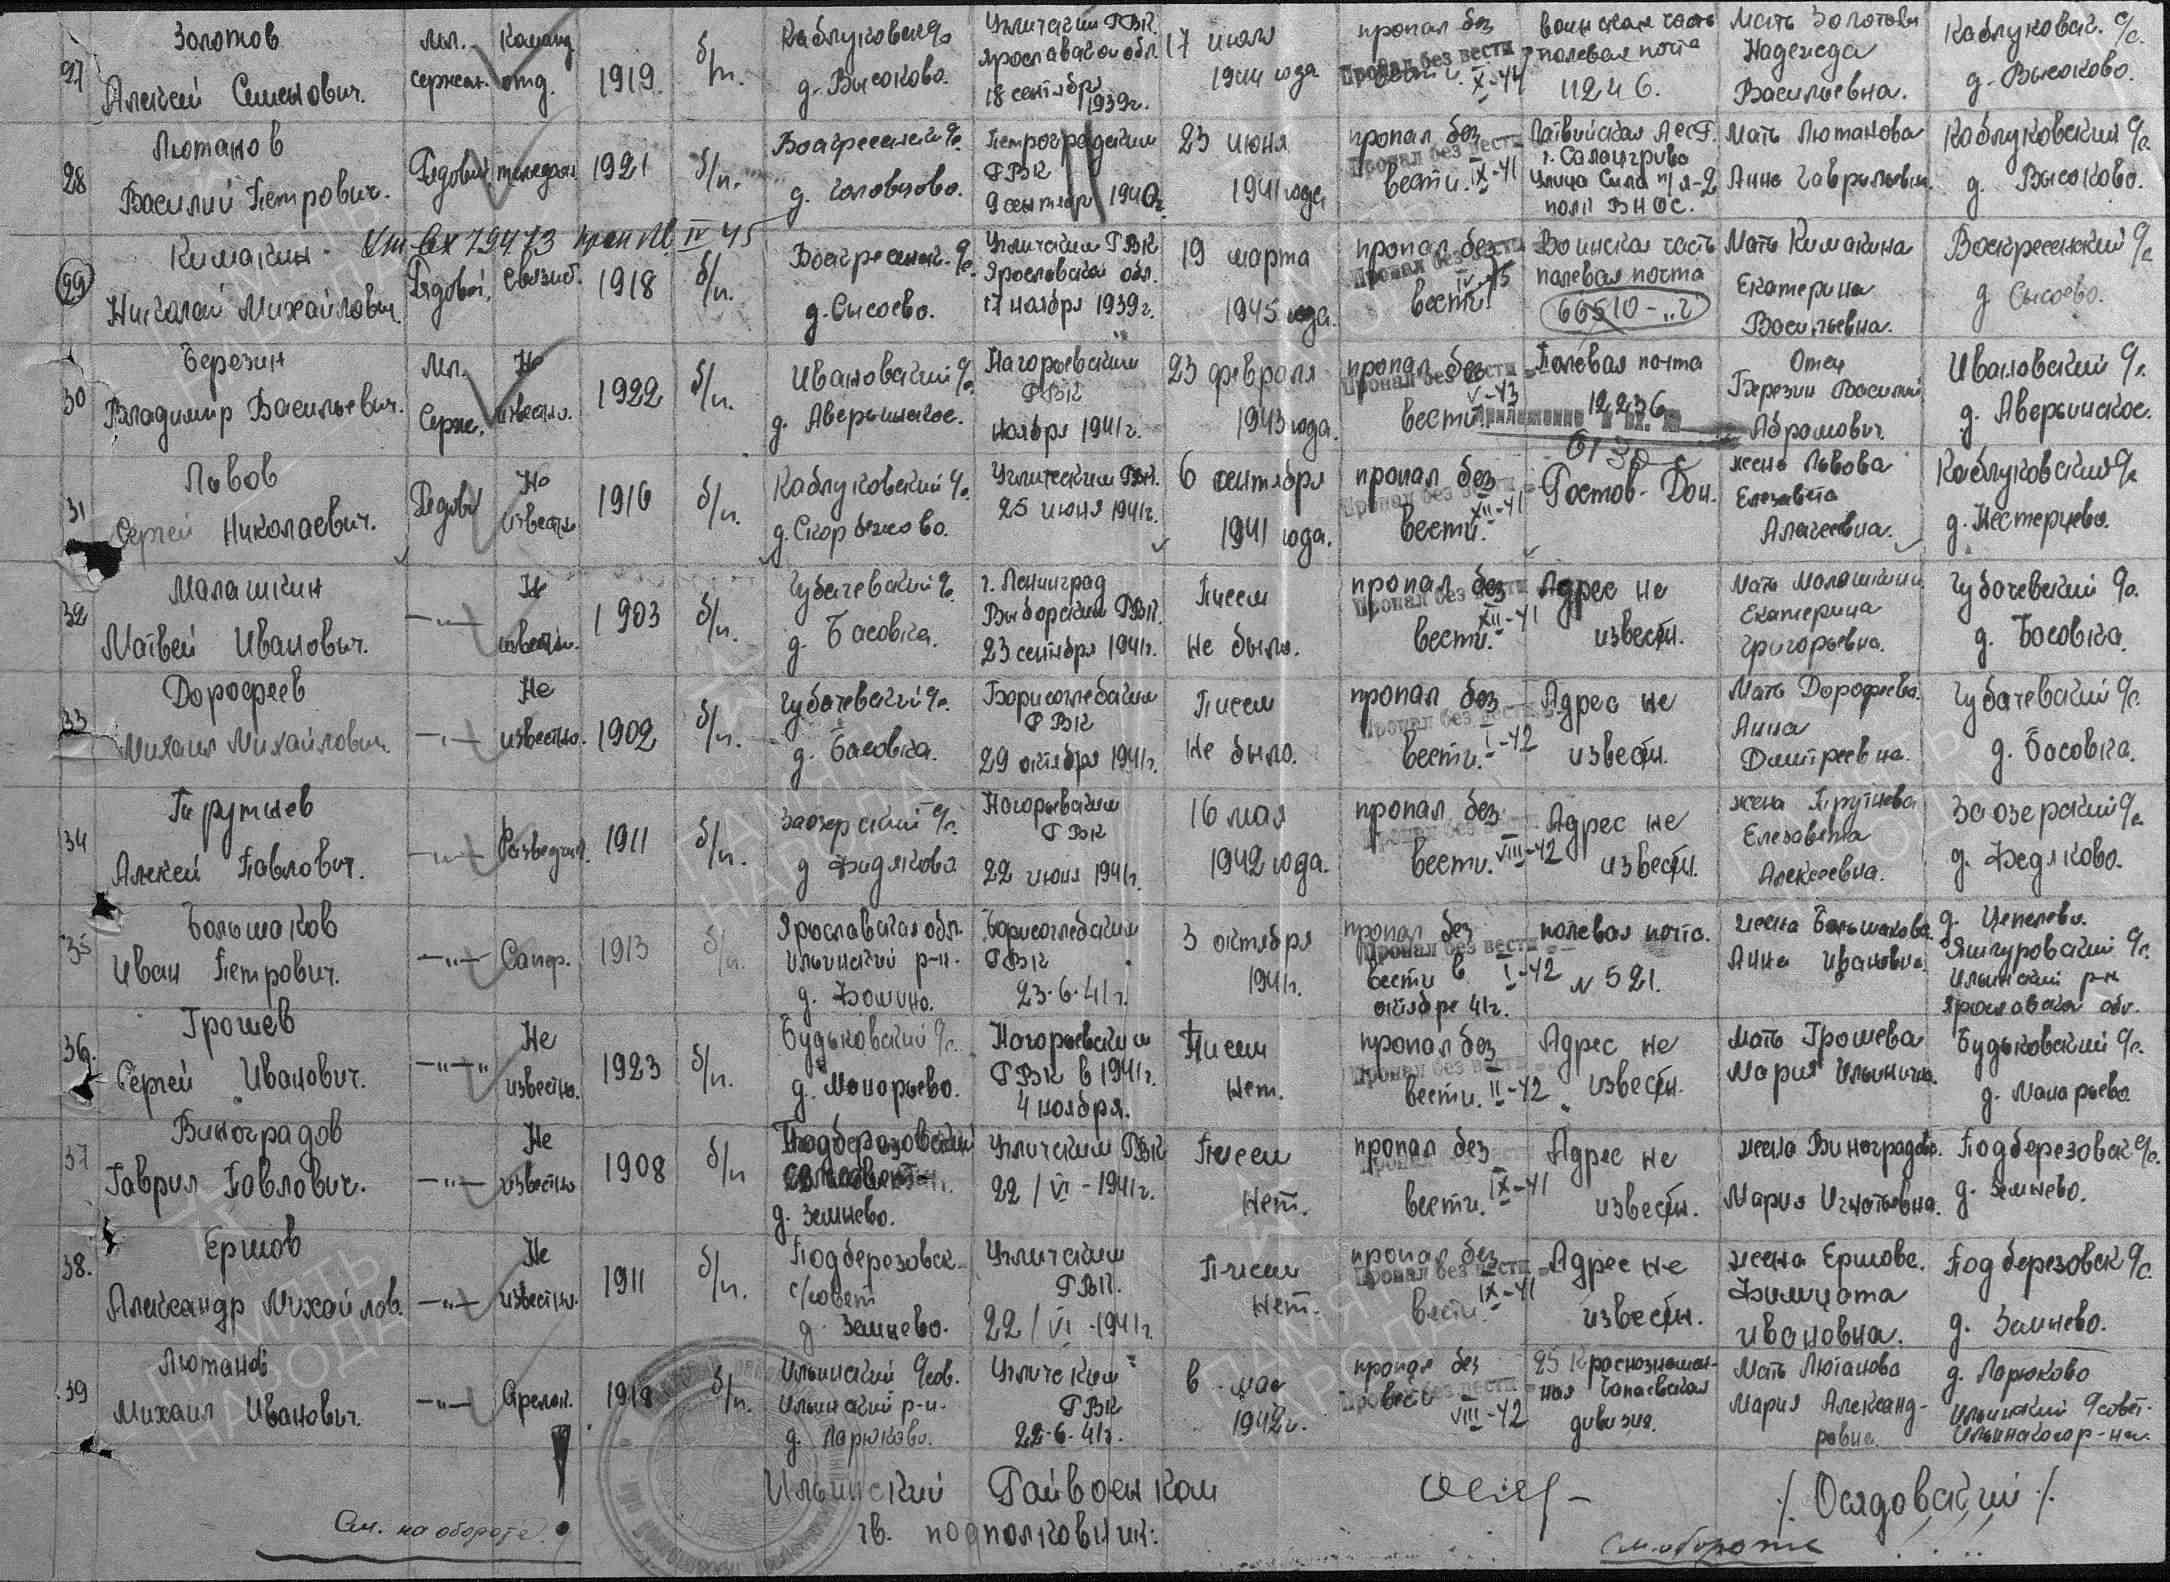 27 Золотов Алексей Семенович. мл. сержан. Команд. отд. 1919. б/п. Каблуковск. с/с д. Высоково. Угличским РВК Ярославской обл. 18 сентября 1939г. 17 июля 1944 года пропал без вести. X-44 воинская часть полевая почта 11246. Мать Золотова Надежда Васильевна. Каблуковск. с/с. д. Высоково.
28 Лютанов Василий Петрович. Рядовой телефон. 1921 б/п. Воскресенский с/с. д. Головцово. Петроградским РВК 9 сентября 1940г. 23 июня 1941 года пропал без вести. IX-41 Латвийская ССР. г. Салацгрива улица Сила п/я-2 полк ВНОС. Мать Лютанова Анна Гавриловна. Каблуковский с/с. д. Высоково.
29 Кимакин Николай Михайлович. Рядовой, связист. 1918 б/п. Воскресенск. с/с. д. Сысоево. Угличским РВК Ярославской обл. 17 ноября 1939г. 19 марта 1945 года. пропал без вести. IV-45 Воинская часть полевая почта 66510-"г" Мать Кимакина Екатерина Васильевна. Воскресенский с/с д Сысоево.
30 Березин Владимир Васильевич. Мл. Серж. Не известно. 1922 б/п. Ивановский с/с. д. Аверкинское. Нагорьевским РВК ноября 1941г. 23 февраля 1943 года. пропал без вести. V-43 Полевая почта 12236 Отец Березин Василий Абрамович. Ивановский с/с. д. Аверкинское.
31 Львов Сергей Николаевич. Рядовой Не известн. 1916 б/п. Каблуковский с/с. д. Скорбежово. Угличским РВК. 25 июня 1941г. 6 сентября 1941 года. пропал без вести. XII-41 Ростов-Дон. жена Львова Елезавета Алексеевна. Каблуковский с/с д. Нестерцево.
32 Малашкин Матвей Иванович. -"- Не известн. 1903 б/п. Губачевский с/с. д. Басовка. г. Ленинград Выборским РВК. 23 сентября 1941г. Писем не было. пропал без вести. XII-41 Адрес не известн. Мать Малашкина Екатерина Григорьевна. Губочевский с/с. д. Басовка.
33 Дорофеев Михаил Михайлович. -"- Не известно. 1902 б/п. Губочевский с/с. д. Басовка. Борисоглебским РВК 29 октября 1941г. Писем не было. пропал без вести. I-42 Адрес не известн. Мать Дорофеева. Анна Дмитреевна. Губачевский с/с. д. Басовка.
34 Прутнев Алексей Павлович. -"- Разведчик. 1911 б/п. Заозерский с/с. д Федяково Нагорьевским РВК 22 июня 1941г. 16 мая 1942 года. пропал без вести. VIII-42 Адрес не известн. жена Прутнева Елезавета Алексеевна. Заозерский с/с д. Федяково.
35 Большаков Иван Петрович. -"- Сапер. 1913 б/п. Ярославская обл. Ильинский р-н. д. Фомино. Борисоглебским РВК 23.6.41г. 3 октября 1941г. пропал без вести в октябре 41г. I-42 полевая почта. N 521. жена Большакова Анна Ивановна. д. Цепелево. Яшкуровский с/с. Ильинский р-н Ярославской обл.
36. Грошев Сергей Иванович. -"-"- Не известно. 1923 б/п. Будьковский с/с. д. Макарьево. Нагорьевским РВК в 1941г. 4 ноября. Писем нет. пропал без вести. II-42 Адрес не известн. мать Грошева Мария Ильинична. Будьковский с/с. д. Макарьево
37 Виноградов Гаврил Павлович. -"- Не известно 1908 б/п Подберезовский д. Земнево. Угличским РВК 22/VI-1941г. Писем нет. пропал без вести. IX-41 Адрес не известн. жена Виноградова. Мария Игнатьевна. Подберезовск с/с. д. Земнево.
38. Ершов Александр Михайлов. -"- Не известно. 1911 б/п. Подберезовск. с/совет д. Земнево. Угличским РВК. 22/VI-1941г. Писем нет. пропал без вести. IX-41 Адрес не известн. жена Ершова. Ивановна. Подберезовск с/с. д. Земнево.
39 Лютанов Михаил Иванович. -"- Стрелок. 1918 б/п. Ильинский с/сов. Ильинский р-н. д. Ларюково. Угличским РВК 22.6.41г. в мае 1942г. пропал без вести VIII-42 25 Краснознамен-ная Чапаевская дивизия. Мать Лютанова Мария Александ-ровна. д. Ларюково Ильинский с/совет. Ильинского р-на.
Ильинский Райвоенком
гв. подполковник:
/Осядовский/.
См. на обороте.
См. обороте